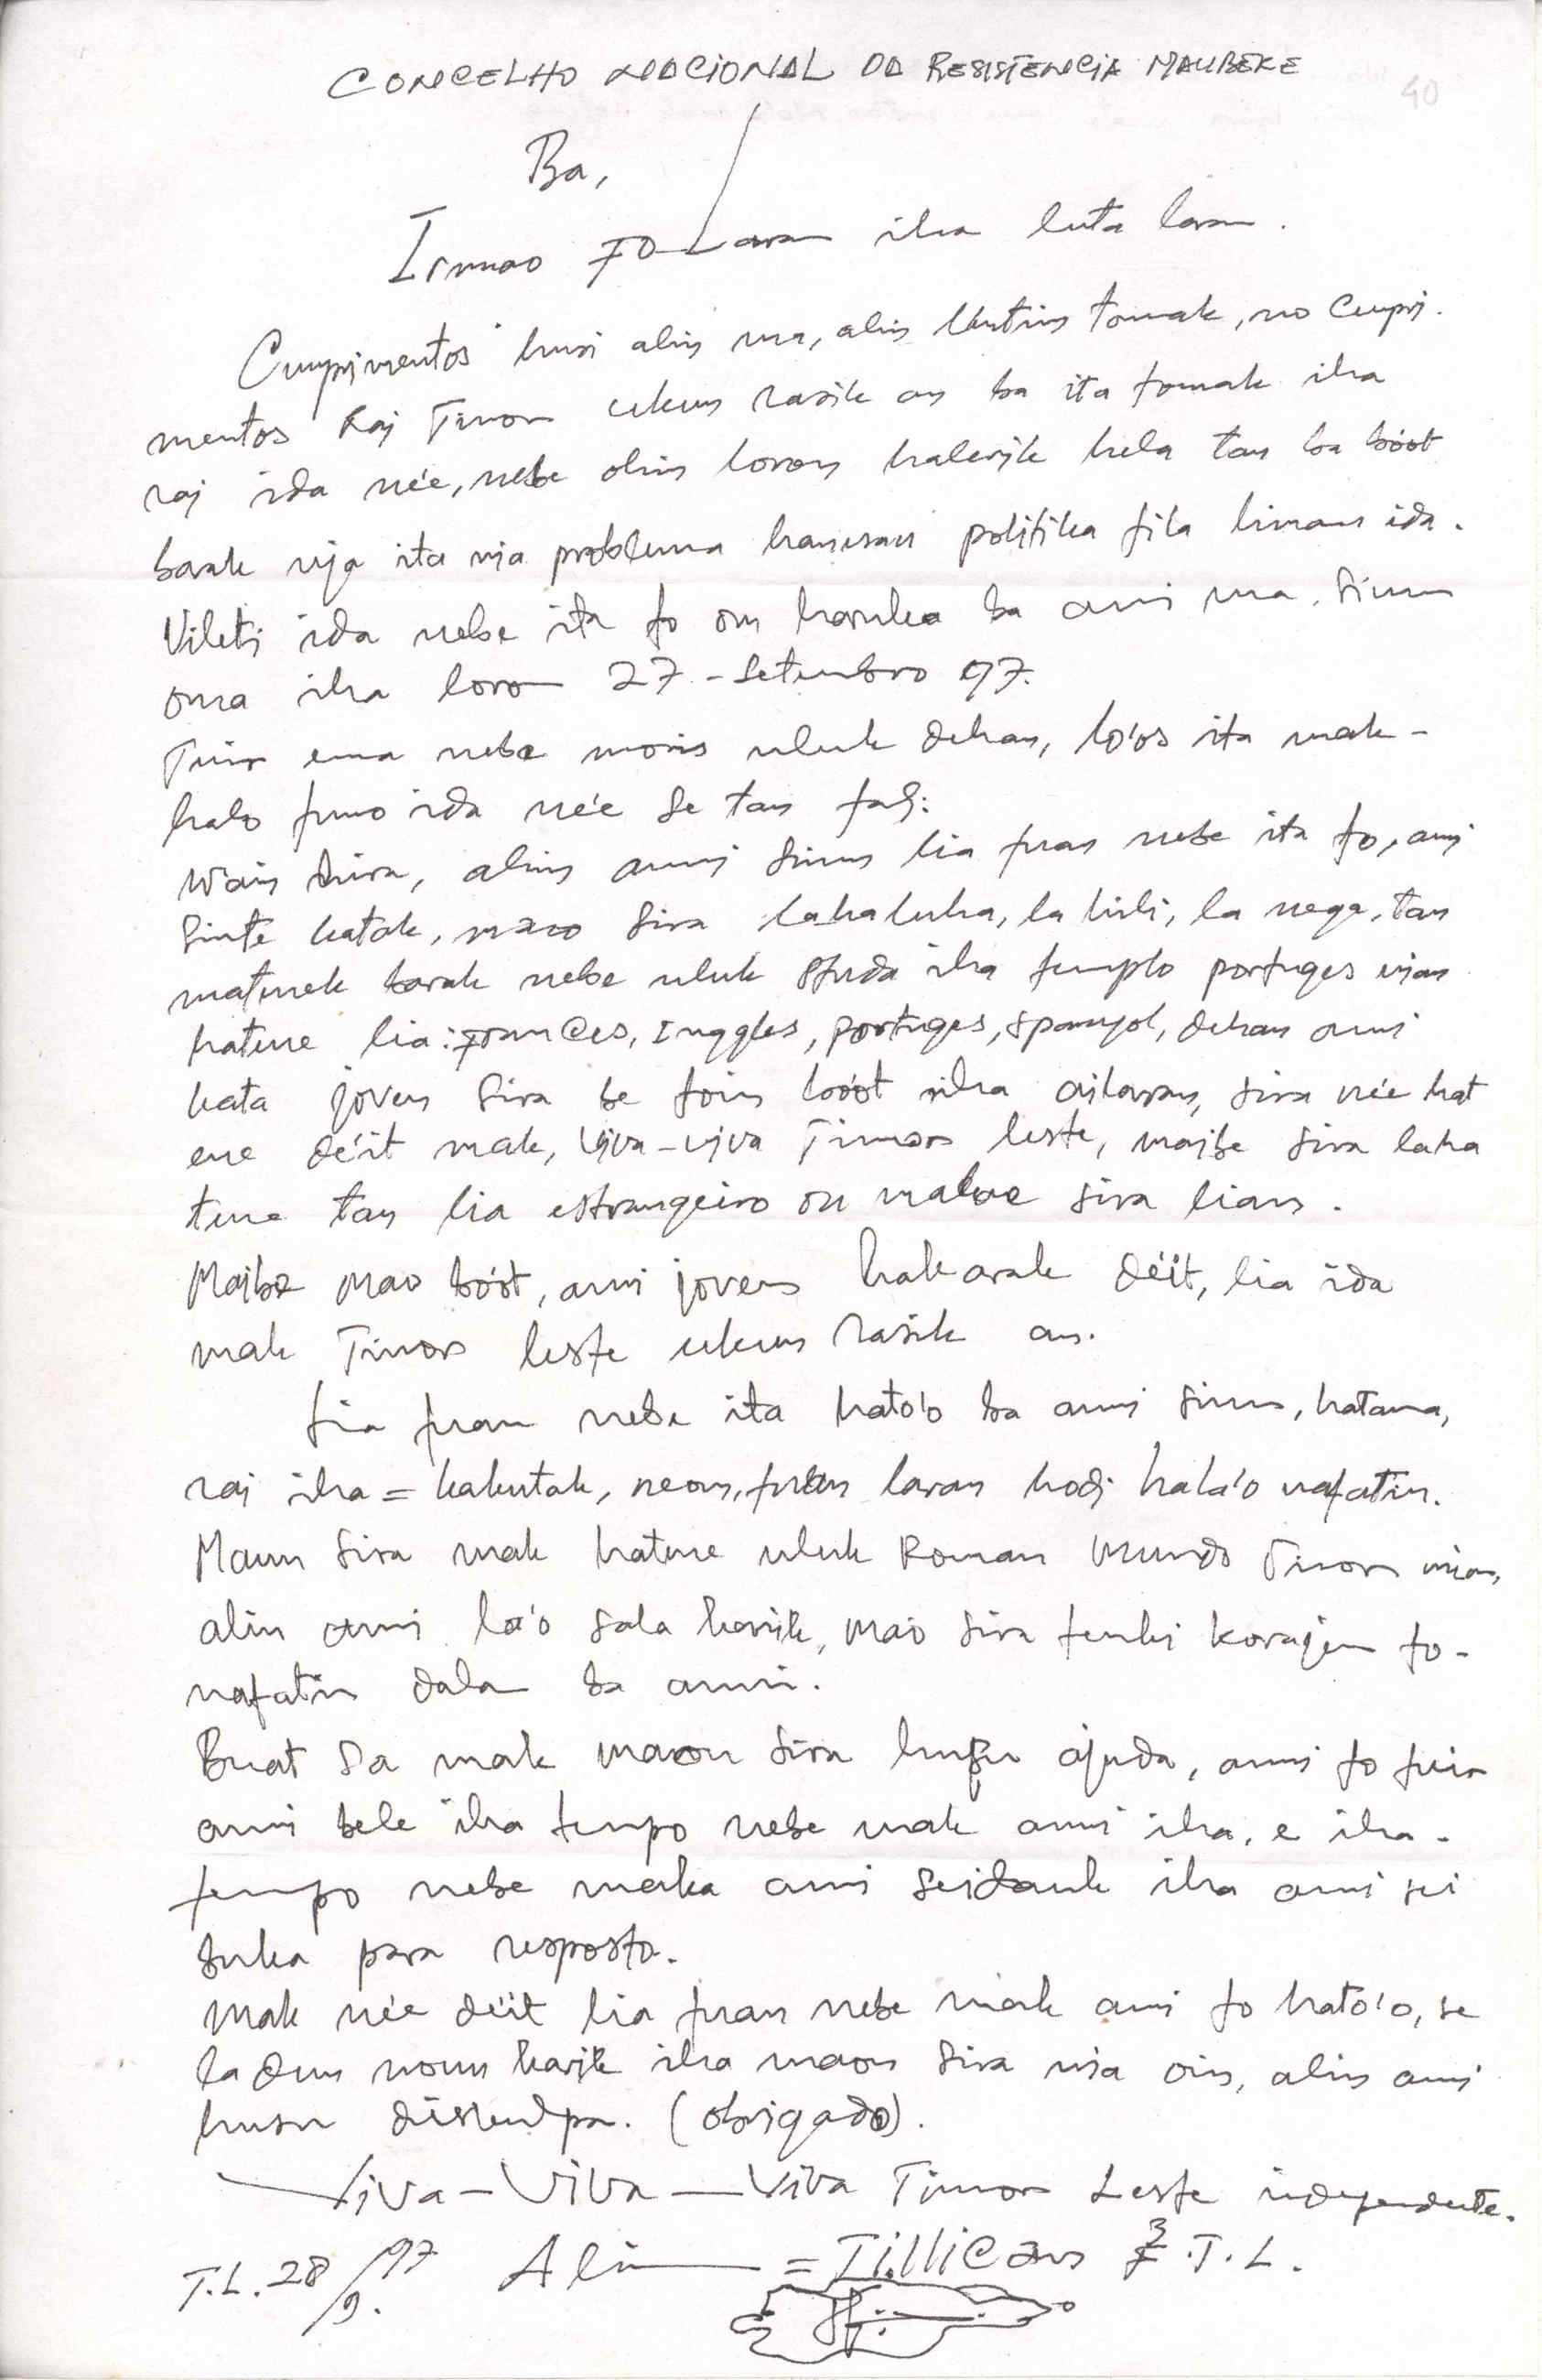 CONCELHO NACIONAL DA RESISTENCIA MAUBERE
40
Ba,
Irmao iha luta laran.
Cumprimentos husi alin na, alin tomak, no Cumpri.
mentos Rai Timor ukun rasik an ba ita tomak iha
rai ida né'e, nebe ohin loron halerik hela tan ba bóot
barak nia ita nia problema hanesan politika fila liman ida.
ida nebe ita fo on haruka ba ami na, simu
ona iha loron 27 - Setembro 97.
Tuir ema nebe moris uluk dehan, lo'os ita mak -
halo funo ida né'e se tan fali:
Wain hira, alin ami simu lia fuan nebe ita fo, ami
Sinte katak, mao sira lahaluha, la lubi, la nega, tan
matenek barak nebe uluk studa iha templo portuges nian
hatene lia: Frances, Inggles, portuges, spanyol, dehan ami
kata joven sira be foin bóot iha ailaran, sira né'e hat
ene dé'it mak, Viva-viva Timor leste, maibe sira laha
tene tan lia estrangeiro ou malae sira lian.
Maibe mao bóot, ami joven hakarak dé'it, lia ida
mak Timor leste ukun rasik an.
Lia fuan nebe ita hato'o ba ami simu, hatama,
rai iha = kakutak, neon, fuan laran hodi hala'o nafatin.
Maun sira mak hatene uluk Roman Mundo Timor nian,
alin ami la'o sala karik, mao sira tenki korajen fo-
nafatin dalan ba ami.
Buat Sa mak maoun sira husu ajuda, ami fo tuir
ami bele iha tempo nebe mak ami iha, e iha -
tempo nebe maka ami seidauk iha ami sei
buka para resposta.
Mak né'e dé'it lia fuan nebe mak ami fo hato'o, se
la dun monu karik iha maon sira nia oin, alin ami
husu diskulpa. (obrigado).
Viva - Viva - Viva Timor Leste independente.
T.L. 28/9.97 Alin = Tillicans .T.L.